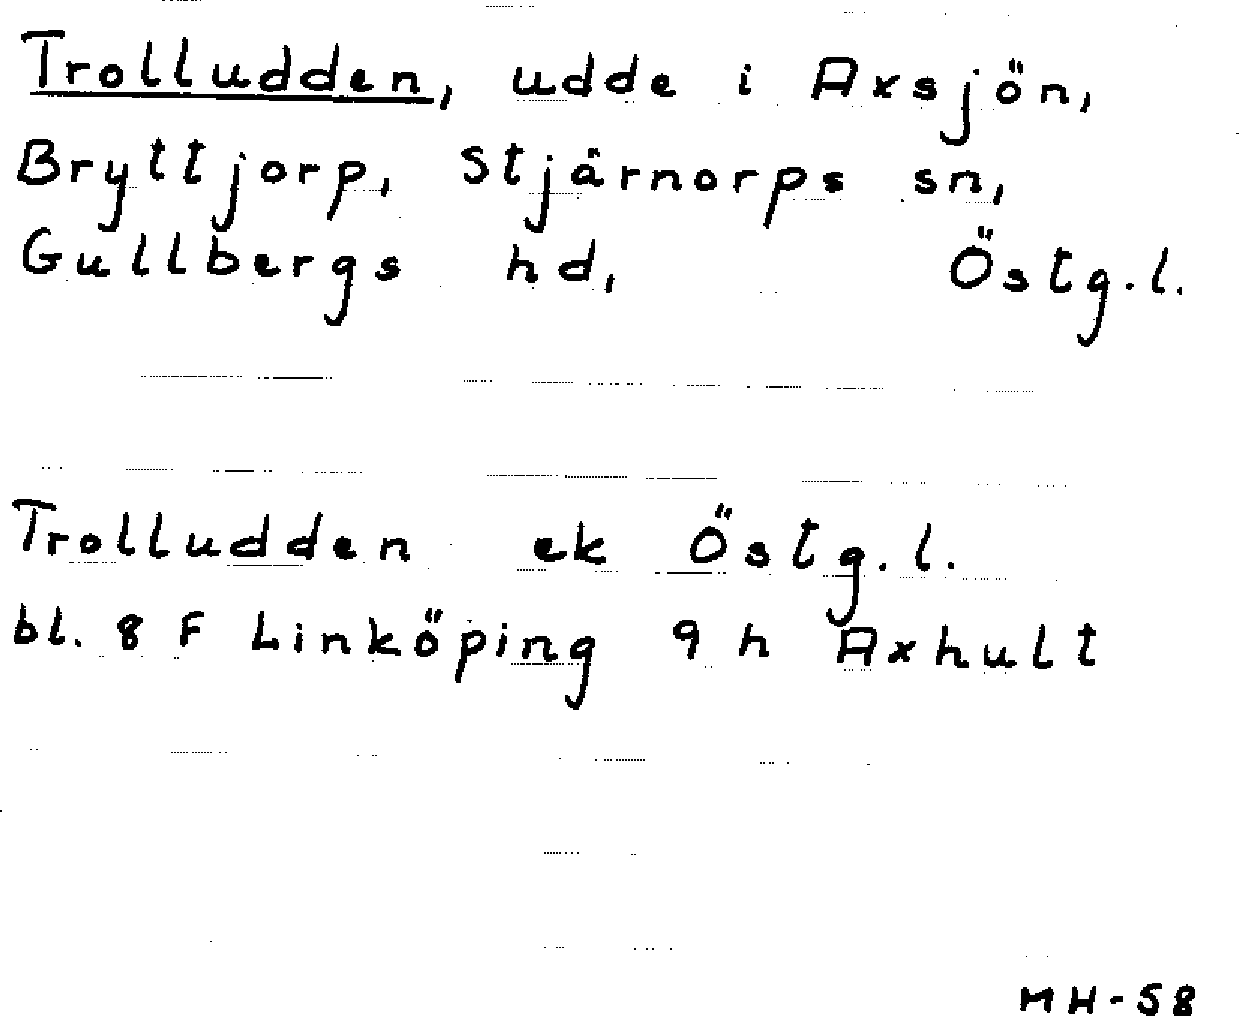 Trolludden, udde i Axsjön,
Bryttjorp, Stjärnorps sn,
Gullbergs hd, Östg.l.
Trolludden ek Östg.l.
bl. 8 F Linköping 9 h Axhult
MH-58